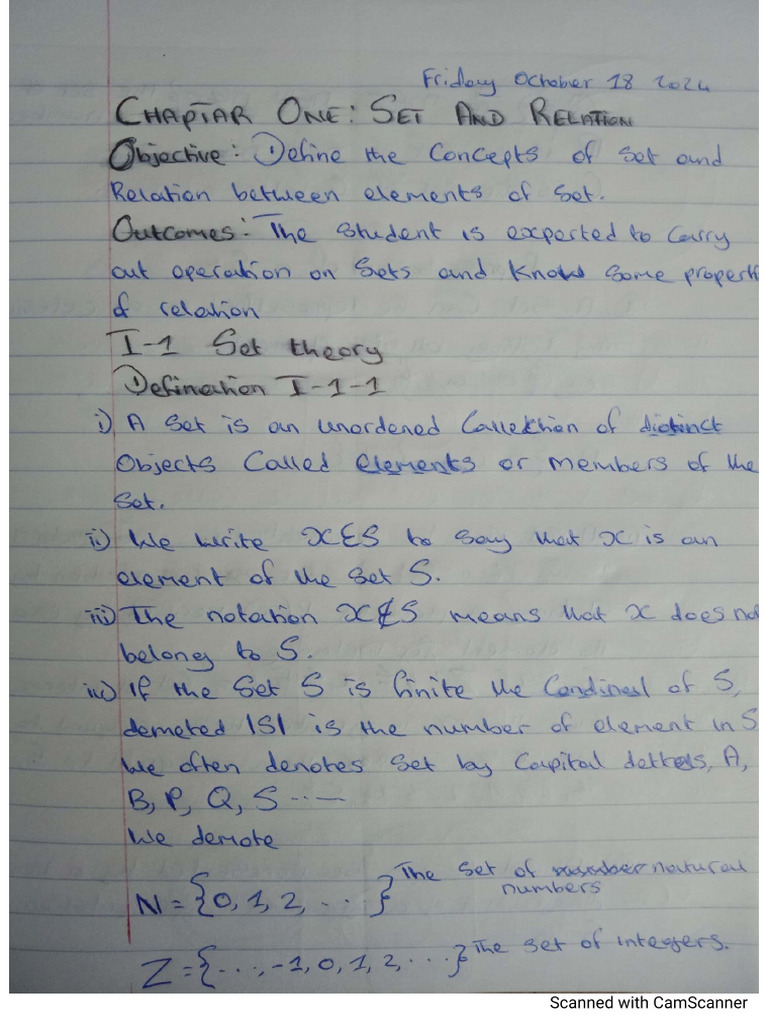 Friday October 18 2024
CHAPTAR ONE: SET AND RELATION
Objective: Define the Concepts of Set and
Relation between elements of Set.
Outcomes: The student is expected to Carry
out operation on Sets and Know Some properti
of relation
I-1 Set theory
Defination I-1-1
i) A Set is an unordered Collection of distinct
Objects Called elements or members of the
Set.
ii) We write x∈S to say that x is an
element of the set S.
iii) The notation x∉S means that x does not
belong to S.
iv) If the Set S is finite the Cardinal of S,
demeted |S| is the number of element in S
We often denotes Set by Capital detters, A,
B, P, Q, S ...
We demote
N = {0, 1, 2, ...} The set of natural
numbers
Z = {..., -1, 0, 1, 2, ...} The set of integers.
Scanned with CamScanner